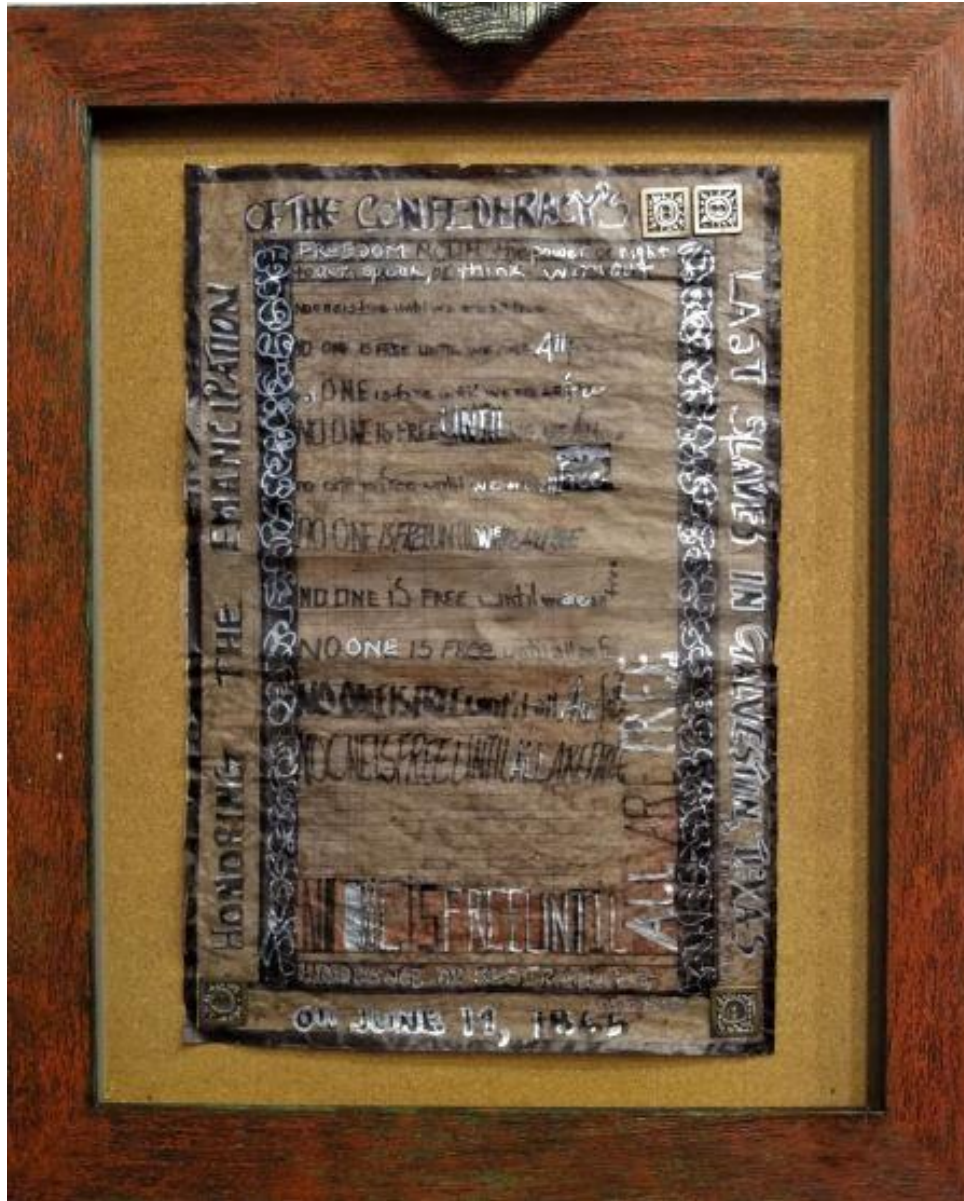 HONORING THE EMANICIPATION
OF THE CONFEDERACY'S
LAST SLAVES IN GALVESTON, TEXAS
ON JUNE 19, 1865
FREEDOM the power or right
to act, speak, or think without
No one is free until we are
NO ONE IS FREE UNTIL WE ARE All
ONE is free until we are
NO ONE IS FREE UNTIL WE ARE
no one is free until we are
NO ONE IS FREE UNTIL WE ARE FREE
NO ONE IS FREE until we are free
NO ONE IS FREE until all are
NO ONE IS FREE until all are
NO ONE IS FREE UNTIL ALL ARE FREE
NO ONE IS FREE UNTIL
ALL ARE FREE
HINDRANCE OR RESTRAINT